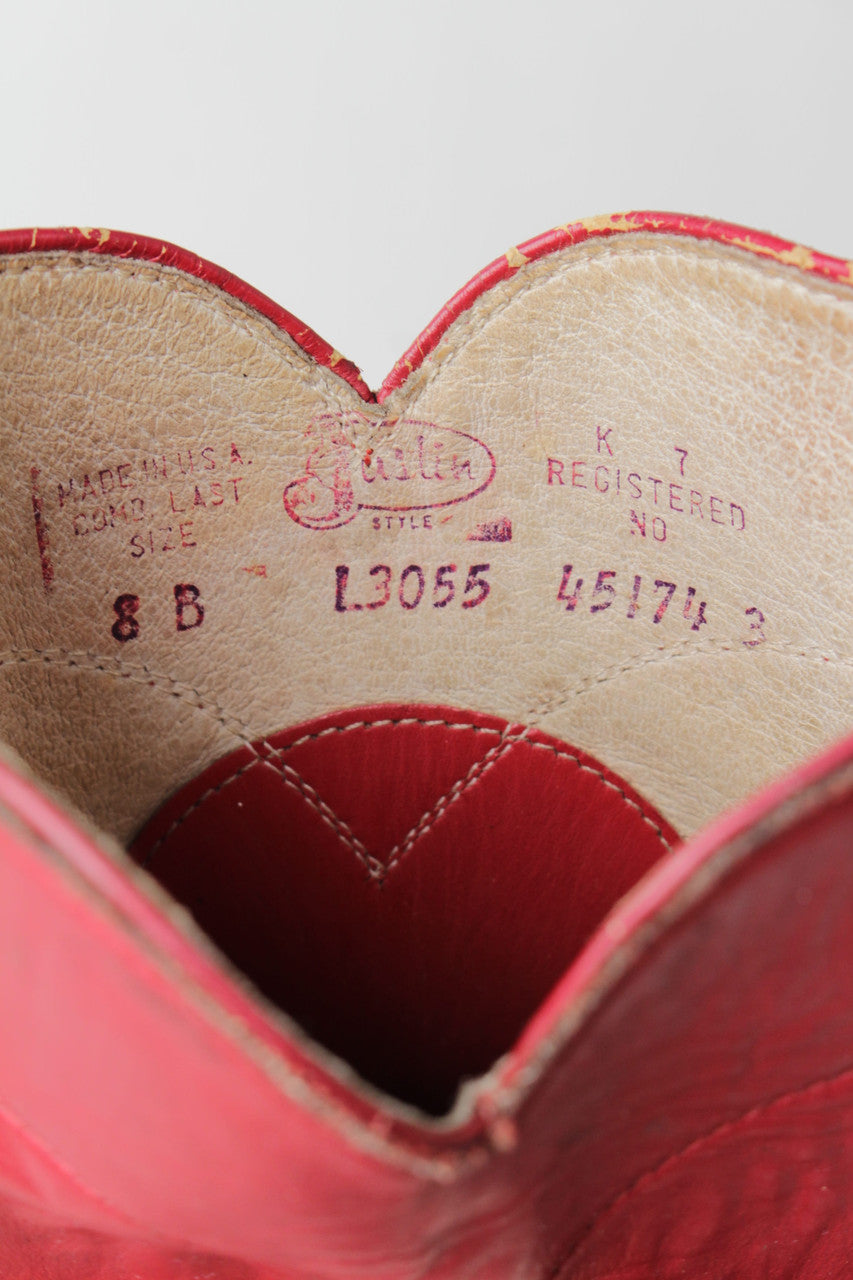 MADE IN U.S.A.
COMB. LAST
SIZE
8 B
Justin
STYLE
L3055
K 7
REGISTERED
NO
45174 3